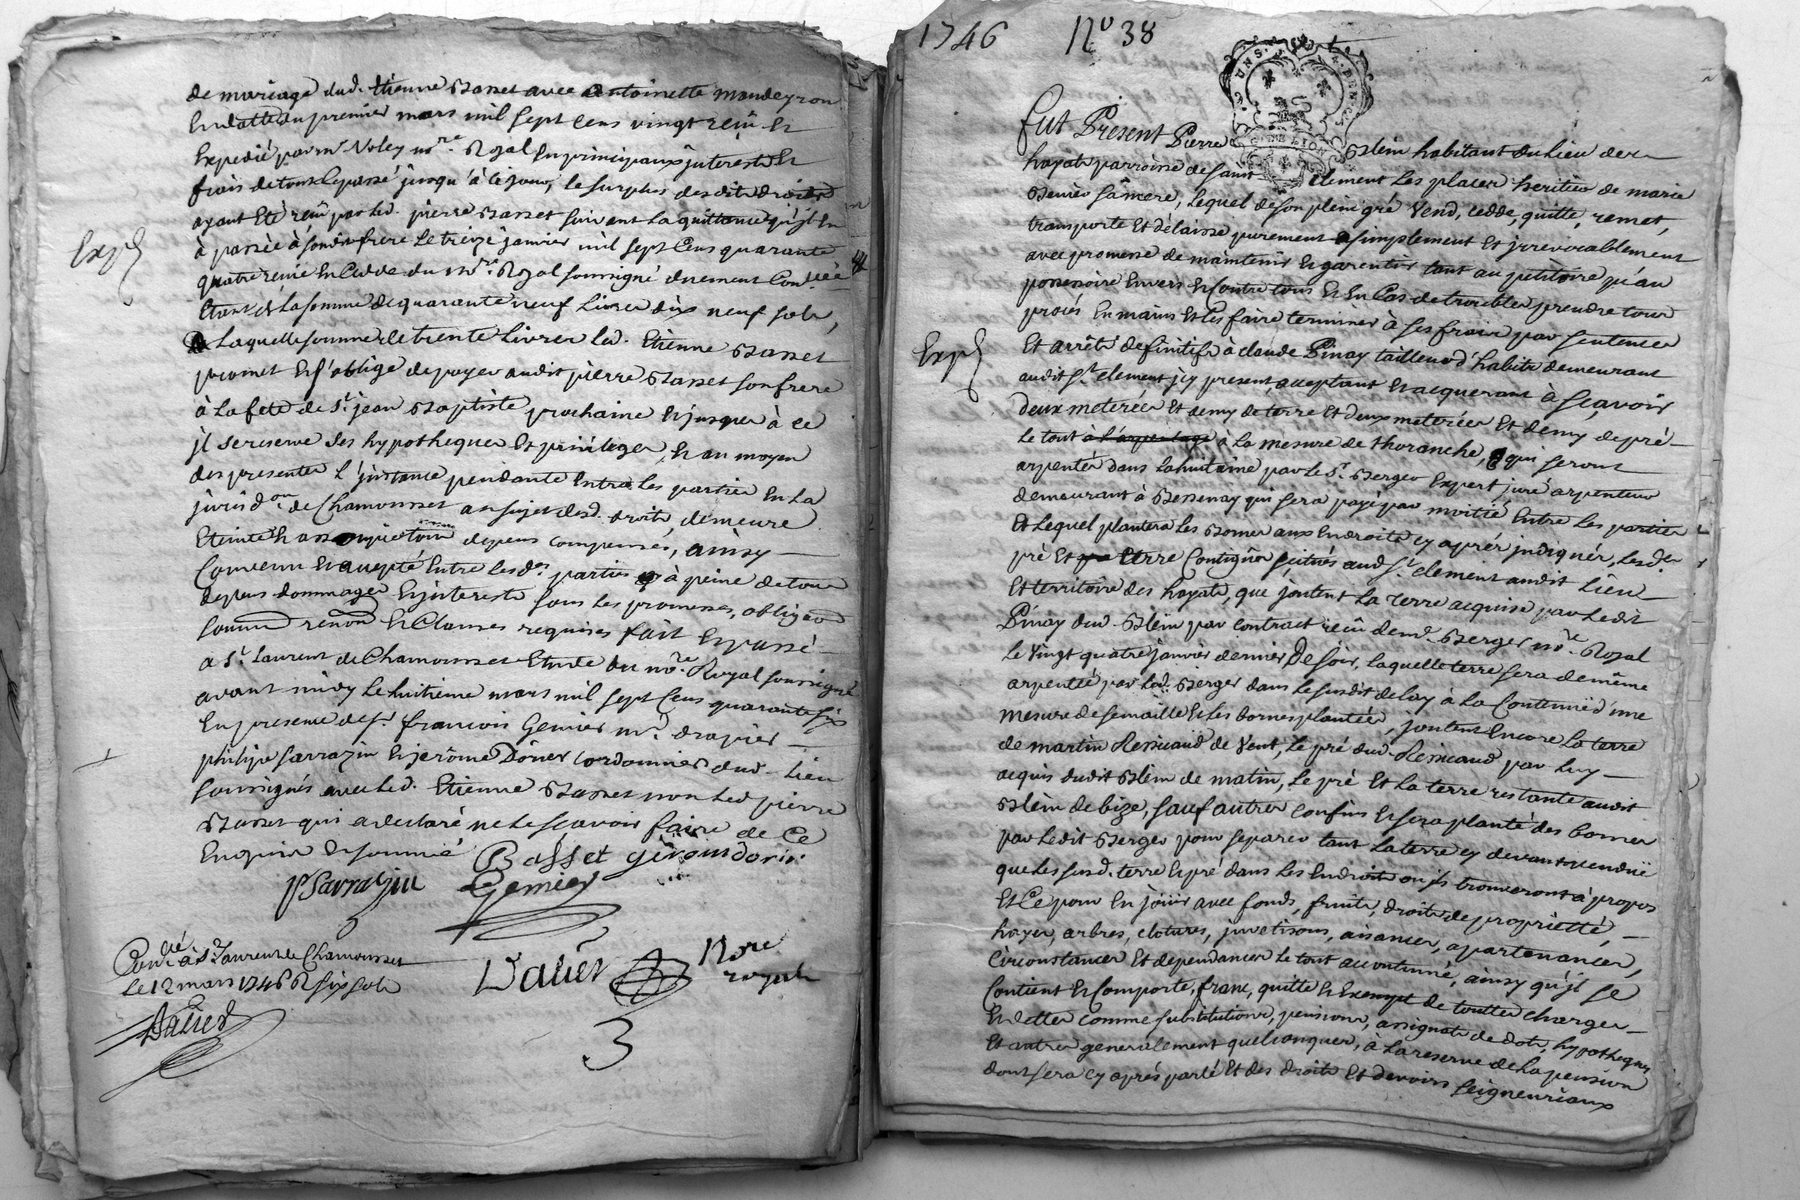 de mariage dud. Etienne Basset avec Antoinette Mondeyron
En datte du premier mars mil sept Cens vingt reçû Et
Expedié par mr. Noley nore. Royal En principaux jnterests Et
frais de tout Lepassé jusqu'à Cejour, le surplus desdits droits
ayant Eté reçû par led. pierre Basset suivant La quittance qu'jl En
à passée à sondit frere Le treize janvier mil sept Cens quarante
quatre reçüe En Cedde du nore. Royal soussigné duement Conllée
Etant de La somme de quarante neuf Livres dix neuf sols,
Laquelle somme de trente Livres led. Etienne Basset
promet Et s'oblige de payer audit pierre Basset son frere
à La fete de St. jean Baptiste prochaine Et jusques à ce
jl se reserve ses hypotheques Et privileges, Et au moyen
des presentes L'jnstance pendante Entre les parties En La
jurisdon. de Chamousset au sujet desd. droits demeure
Eteinte Et assoupie depens compensés, ainsy
Convenu Et accepté Entre lesdes. parties à peine de tous
depens dommages Et jnterests sous les promesses, obligaons
soumons renons Et Clauses requises fait Et passé
a St. Laurent de Chamousset Etude du nore. Royal soussigné
avant midy Le huitième mars mil sept Cens quarante six
En presence de sr. françois Genier md. drapier
philipe sarrazin Et jerôme Dorier Cordonnier dud. Lieu
soussignés avec Led. Etienne Basset non Led pierre
Basset qui a declaré ne Le sçavoir faire de Ce
Enquis Et sommé
Basset
PSarrazin Genier
Conllé à St Laurent de Chamousset
Le 12 mars 1746 R six sols
Nore
royal
3
Exp
1746 No 38
GEN. DE LYON
fut Present Pierre Blein habitant du Lieu des
hayats parroisse de saint Clement Les places heritier de marie
Benier sa mere, Lequel de son plein gré Vend, cedde, quitte, remet,
transporte Et délaisse purement simplement Et jrrevocablement
avec promesse de maintenir Et garentir tant au petitoire qu'au
possessoire Envers Et Contre tous Et En Cas de troubles prendre tous
procés En mains Et Les faire terminer à ses frais par sentences
Exp
Et arrêts definitifs à claude Pinay tailleur d'habits demeurant
audit St. Clement jcy present, acceptant Et acquerant à sçavoir
deux meterées Et demy de terre Et deux meterées Et demy de pré
Le tout à l'arpentage à La mesure de thoranche, qui seront
arpentés dans La huitaine par Le Sr. Berger Expert juré arpenteur
demeurant à Bessenay qui sera payé par moitié Entre Les parties
Et Lequel plantera Les Bornes aux Endroits cy aprés jndiqués, Lesd.
pré Et terre Contigües scitués aud St. Clement audit Lieu
Et territoire des hayats, que joutent La terre acquise par Ledit
Pinay dud. Blein par Contract reçû de mr. Berger nore. Royal
Le Vingt quatre janvier dernier De soir, Laquelle terre sera de même
arpentée par Led. Berger dans Le susdit delay à La Contenüe d'une
mesure de semaille Et Les bornes plantées, joutent Encore La terre
de martin Ressicaud de Vent, Le pré dud. Ressicaud par Luy
acquis dudit Blein de matin, Le pré Et La terre restante audit
Blein de bize, sauf autres Confins Et sera planté des bornes
par Ledit Berger pour separer tant La terre cy devant vendüe
que Les susd. terre Et pré dans Les Endroits ou jls trouveront à propos
Et Ce pour En joüir avec fonds, fruits, droits de proprieté,
hayes, arbres, clotures, aisances, apartenances,
Circonstances Et dependances Le tout accoutumé, ainsy qu'jl se
Contient Et Comporte, franc, quitte Et Exempt de touttes charges
Et dettes comme substitutions, pensions, assignats de dots, hypotheques
Et autres generalement quelconques, à La reserve de La pension
dont sera cy aprés parlé Et des droits Et devoirs seigneuriaux